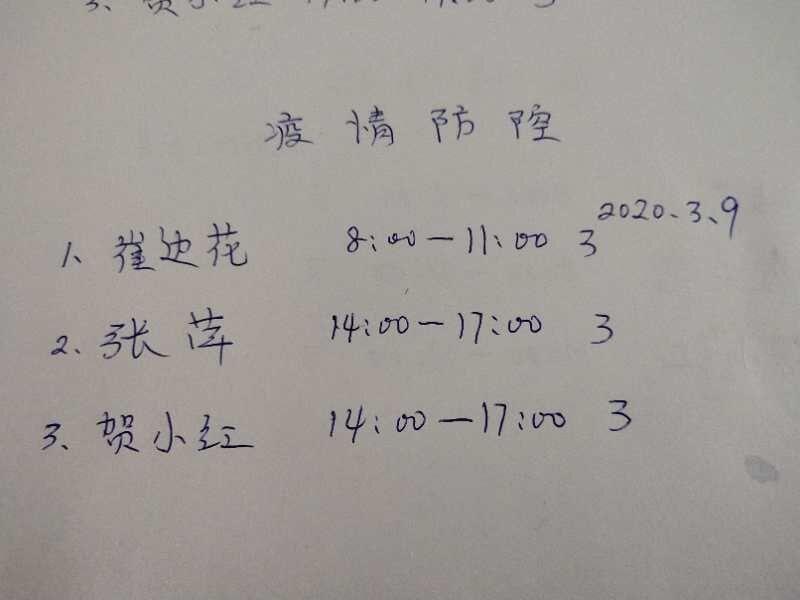 疫情防控
2020.3.9
1、崔边花 8:00-11:00 3
2、张萍 14:00-17:00 3
3、贺小红 14:00-17:00 3